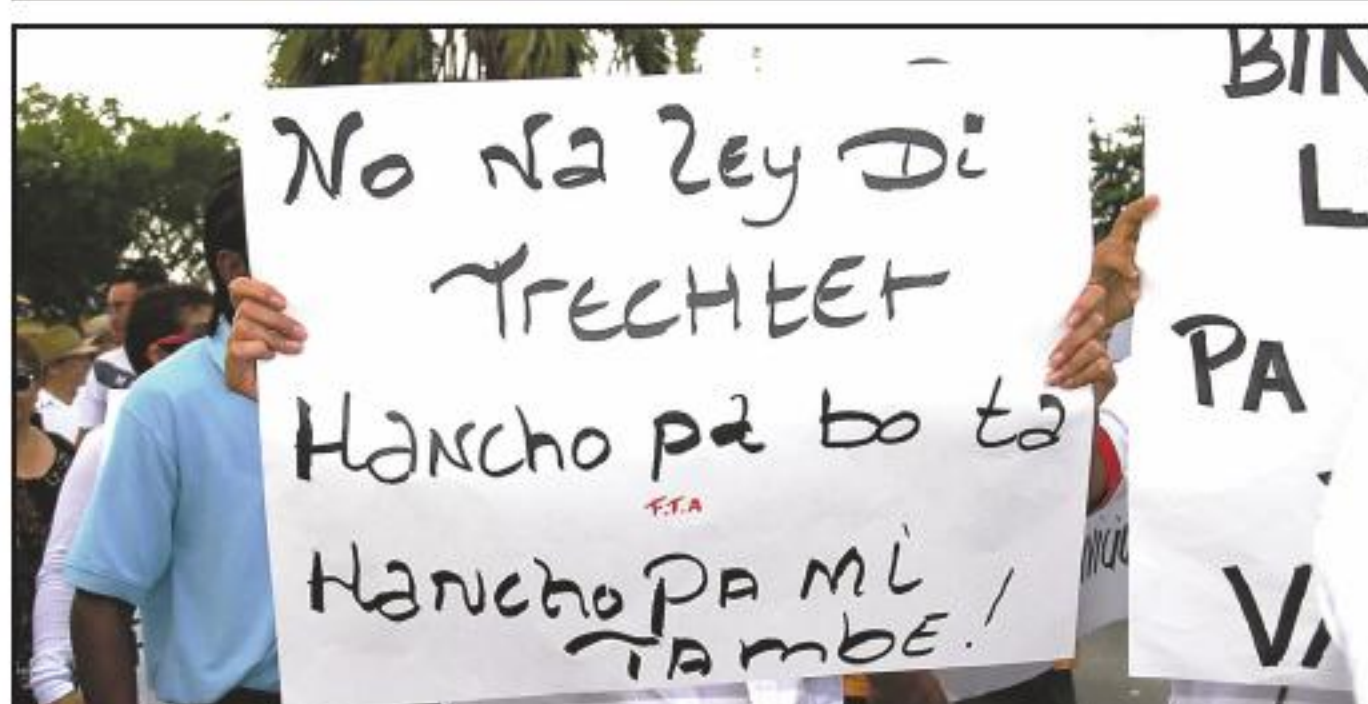 No Na Ley Di
TrECHtEr
HaNcho pa bo ta
F.T.A
HaNcho PA Mi
TAmbE!
BIN
L
PA